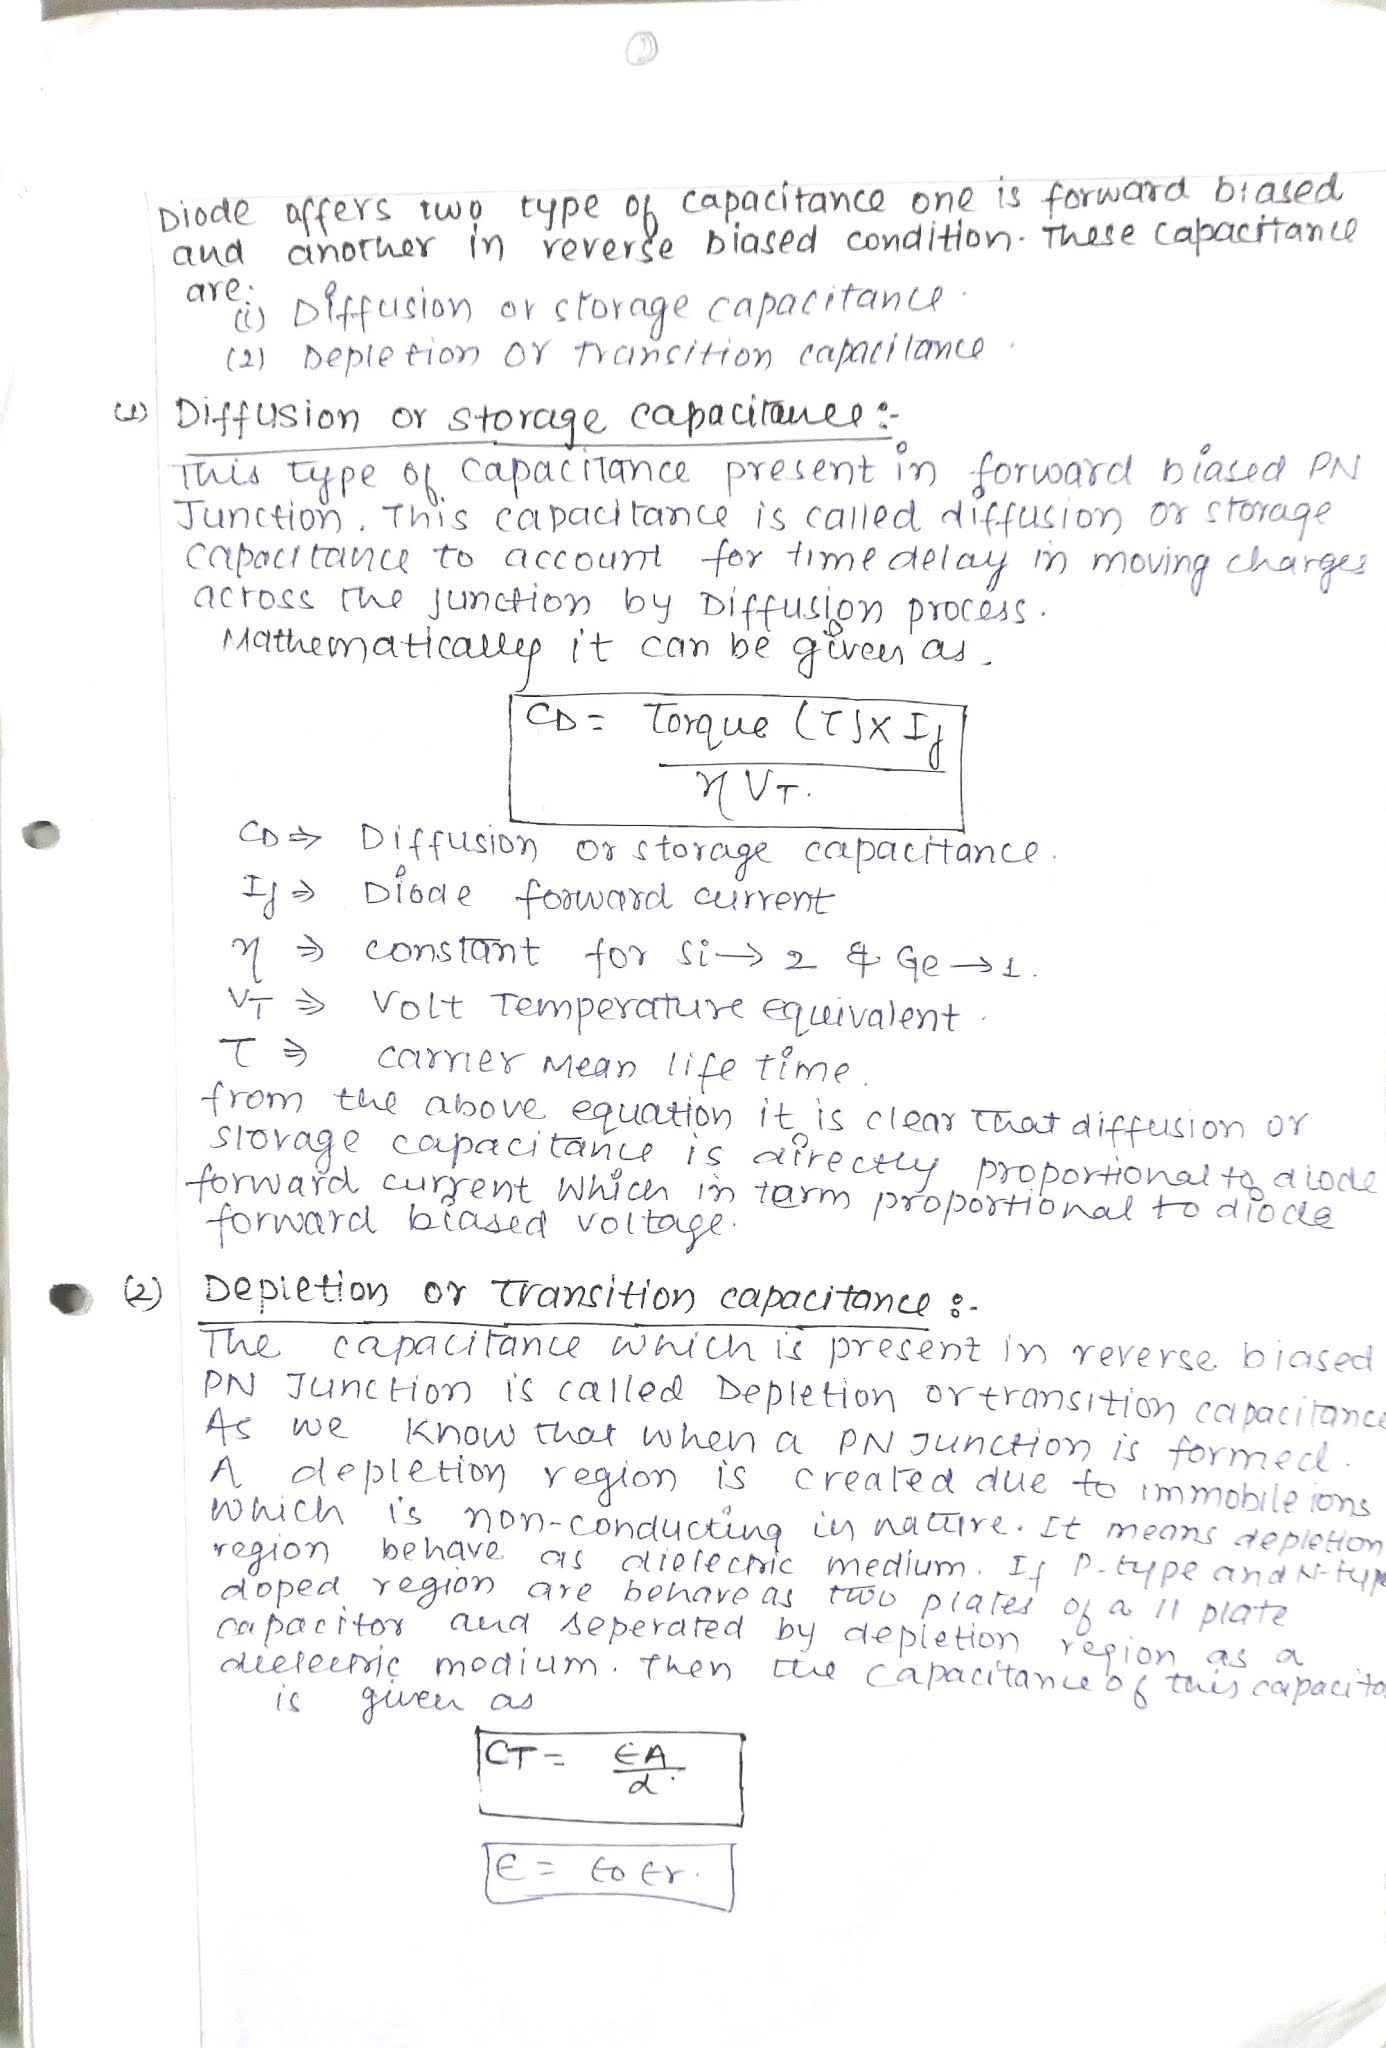 Diode offers two type of capacitance one is forward biased
and another in reverse biased condition. These capacitance
are:
(i) Diffusion or storage capacitance.
(2) Depletion or transition capacitance.
(1) Diffusion or storage capacitance :-
This type of capacitance present in forward biased PN
Junction. This capacitance is called diffusion or storage
capacitance to account for time delay in moving charges
across the junction by Diffusion process.
Mathematically it can be given as.
CD = Torque (τ) X If
η VT.
CD ⇒ Diffusion or storage capacitance.
If ⇒ Diode forward current
η ⇒ constant for Si → 2 & Ge → 1.
VT ⇒ Volt Temperature equivalent.
τ ⇒ carrier Mean life time.
from the above equation it is clear that diffusion or
storage capacitance is directly proportional to diode
forward current which in tarm proportional to diode
forward biased voltage.
(2) Depletion or transition capacitance :-
The capacitance which is present in reverse biased
PN Junction is called Depletion or transition capacitance
As we know that when a PN Junction is formed.
A depletion region is created due to immobile ions
which is non-conducting in nature. It means depletion
region behave as dielectric medium. If P-type and N-type
doped region are behave as two plates of a || plate
capacitor and seperated by depletion region as a
dielectric modium. Then the capacitance of this capacito
is given as
CT = ЄA
d.
Є = Єo Єr.